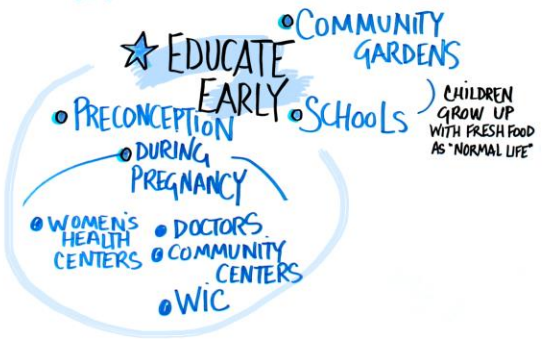 EDUCATE
EARLY
COMMUNITY
GARDENS
SCHOOLS
CHILDREN
GROW UP
WITH FRESH FOOD
AS "NORMAL LIFE"
PRECONCEPTION
DURING
PREGNANCY
WOMEN'S
HEALTH
CENTERS
DOCTORS
COMMUNITY
CENTERS
WIC